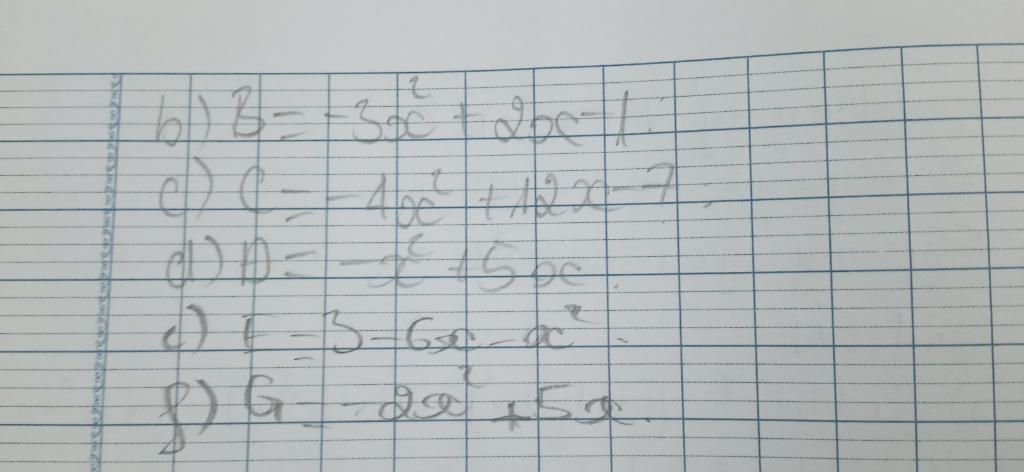 b) B = -3x² + 2x - 1.
c) C = -4x² + 12x - 7.
d) D = -x² + 5x.
e) E = 3 - 6x - x².
f) G = -2x² + 5x.